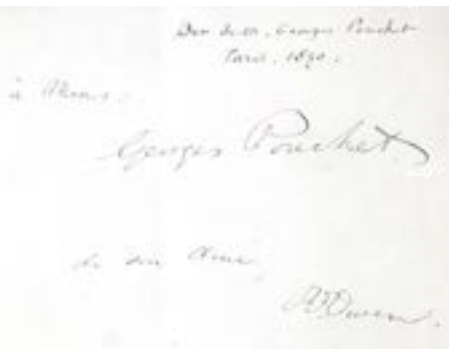 Don de M. Georges Pouchet
Paris. 1890.
à Mons.
Georges Pouchet
de son Ami,
Owen.